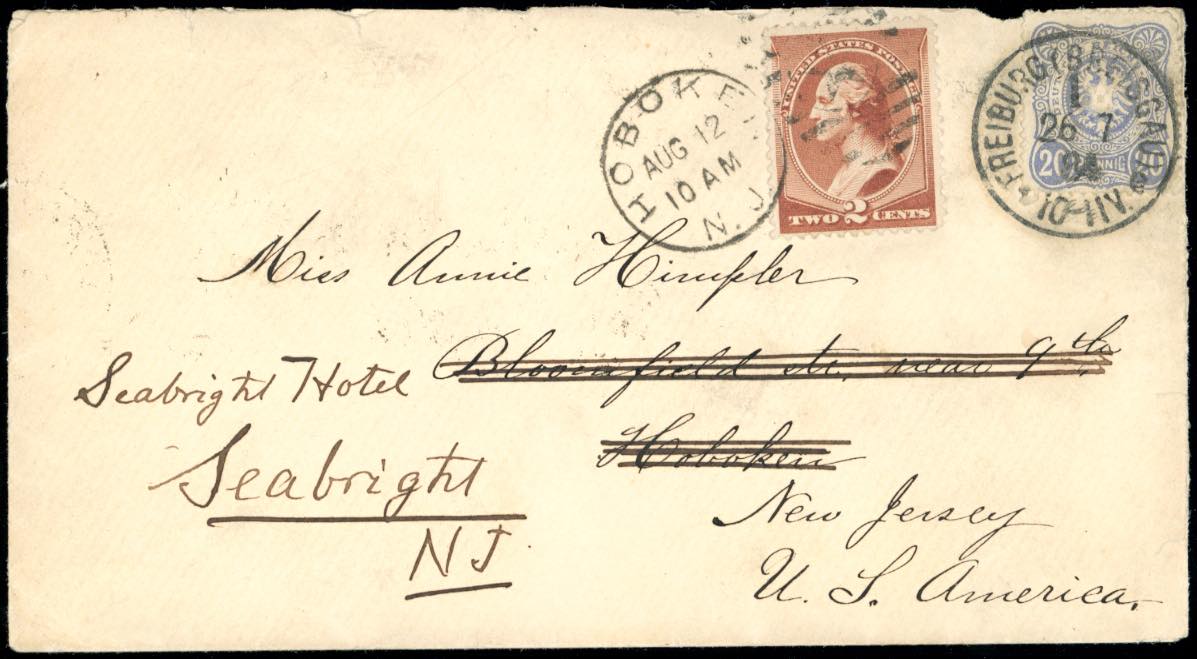 HOBOKEN
AUG 12
10 AM
N.J.
UNITED STATES POST
TWO 2 CENTS
FREIBURG (BREISGAU)
1
26 7
10-11V.
20 PFENNIG 20
Miss Annie Himpler
Bloomfield str. near 9th
Hoboken
New Jersey
U. S. America.
Seabright Hotel
Seabright
NJ